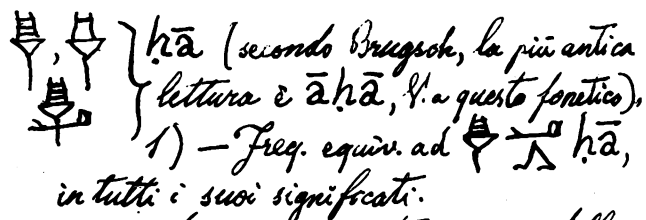 , } ḥā (secondo Brugsch, la più antica
lettura è āḥā, V. a questo fonetico),
1) — Freq. equiv. ad ḥā,
in tutti i suoi significati.